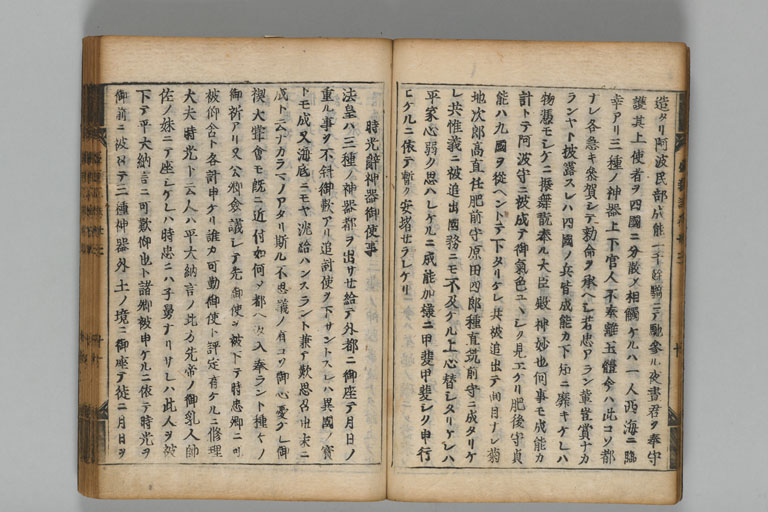 造タリ阿波民部成能一千餘騎ニテ馳參ル夜晝君ヲ奉守
護其上使者ヲ四國ニ分散メ相觸ケルハ一人西海ニ臨
幸アリ三種ノ神器上下官人不奉離玉體今ハ此コソ都
ナレ各急キ參賀シテ勅命ヲ承ヘシ若忠アラン輩豈賞ナカ
ランヤト披露スレハ四國ノ兵皆成能カ下知ニ靡キケレハ
物騷モシケニ振舞龍奉ル大臣殿神妙也何事モ成能カ
計トテ阿波守ニ被成テ御氣色ユヽシク見エケリ肥後守貞
能ハ九國ヲ從ヘントテ下タリケレ共被追出テ面目ナシ菊
地次郎高直任肥前守原田四郎種直筑前守ニ成タリケ
レ共惟義ニ被追出國務ニモ不及ケル上心替シタリケレハ
平家心弱ク思ハレケルニ成能加樣ニ甲斐甲斐シク申行
ヒケルニ依テ暫ク安堵セラレケリ
時光辭神器御使事
法皇ハ三種ノ神器都ヲ出サセ給テ外都ニ御座テ月日ノ
重ル事ヲ不斜御歎アリ追討使ヲ下サントスレハ異國ノ寶
トモ成又海底ニモヤ沈給ハンスラント兼テ歎思召世末ニ
成ト云ナカラマノアタリ斯ル不思議ノ有コソ御心憂ケレ御
禊大甞會モ既ニ近付如何メ都ヘ入奉ラント種々ノ
御祈アリ又公卿僉議シテ先御使ヲ被下テ時忠卿ニ可
被仰含ト各計申ケリ誰カ可勤御使ト評定有ケルニ修理
大夫時光卜云人ハ平大納言ノ北方先帝ノ御乳人帥
佐ノ妹ニテ座シケレハ時忠ニハ子舅ナリサレハ此人ヲ被
下テ平大納言ニ可歎仰也ト諸卿被申ケルニ依テ時光ヲ
御前ニ被召テ三種神器外土ノ境ニ御座テ徒ニ月日ヲ